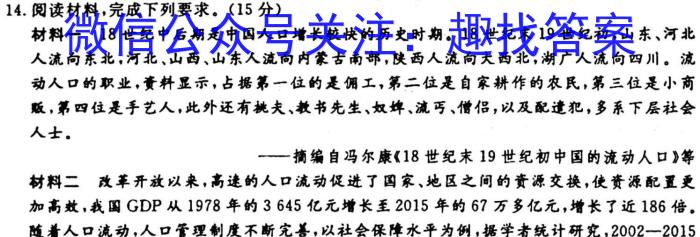 14. 阅读材料,完成下列要求。(15 分)
材料一 18世纪中后期是中国人口增长较快的历史时期。18世纪末19世纪初,山东、河北
微信公众号关注：趣找答案
人流向东北,河北、山西、山东人流向内蒙古南部,陕西人流向大西北,湖广人流向四川。流
动人口的职业,资料显示,占据第一位的是佣工,第二位是自家耕作的农民,第三位是小商
贩,第四位是手艺人,此外还有挑夫、教书先生、奴婢、流丐、僧侣,以及配遣犯,多系下层社会
人士。
——摘编自冯尔康《18 世纪末 19 世纪初中国的流动人口》等
材料二 改革开放以来,高速的人口流动促进了国家、地区之间的资源交换,使资源配置更
加高效,我国 GDP 从 1978 年的 3 645 亿元增长至 2015 年的 67 万多亿元,增长了近 186 倍。
随着人口流动,人口管理制度不断完善,以社会保障水平为例,据学者统计研究,2002—2015